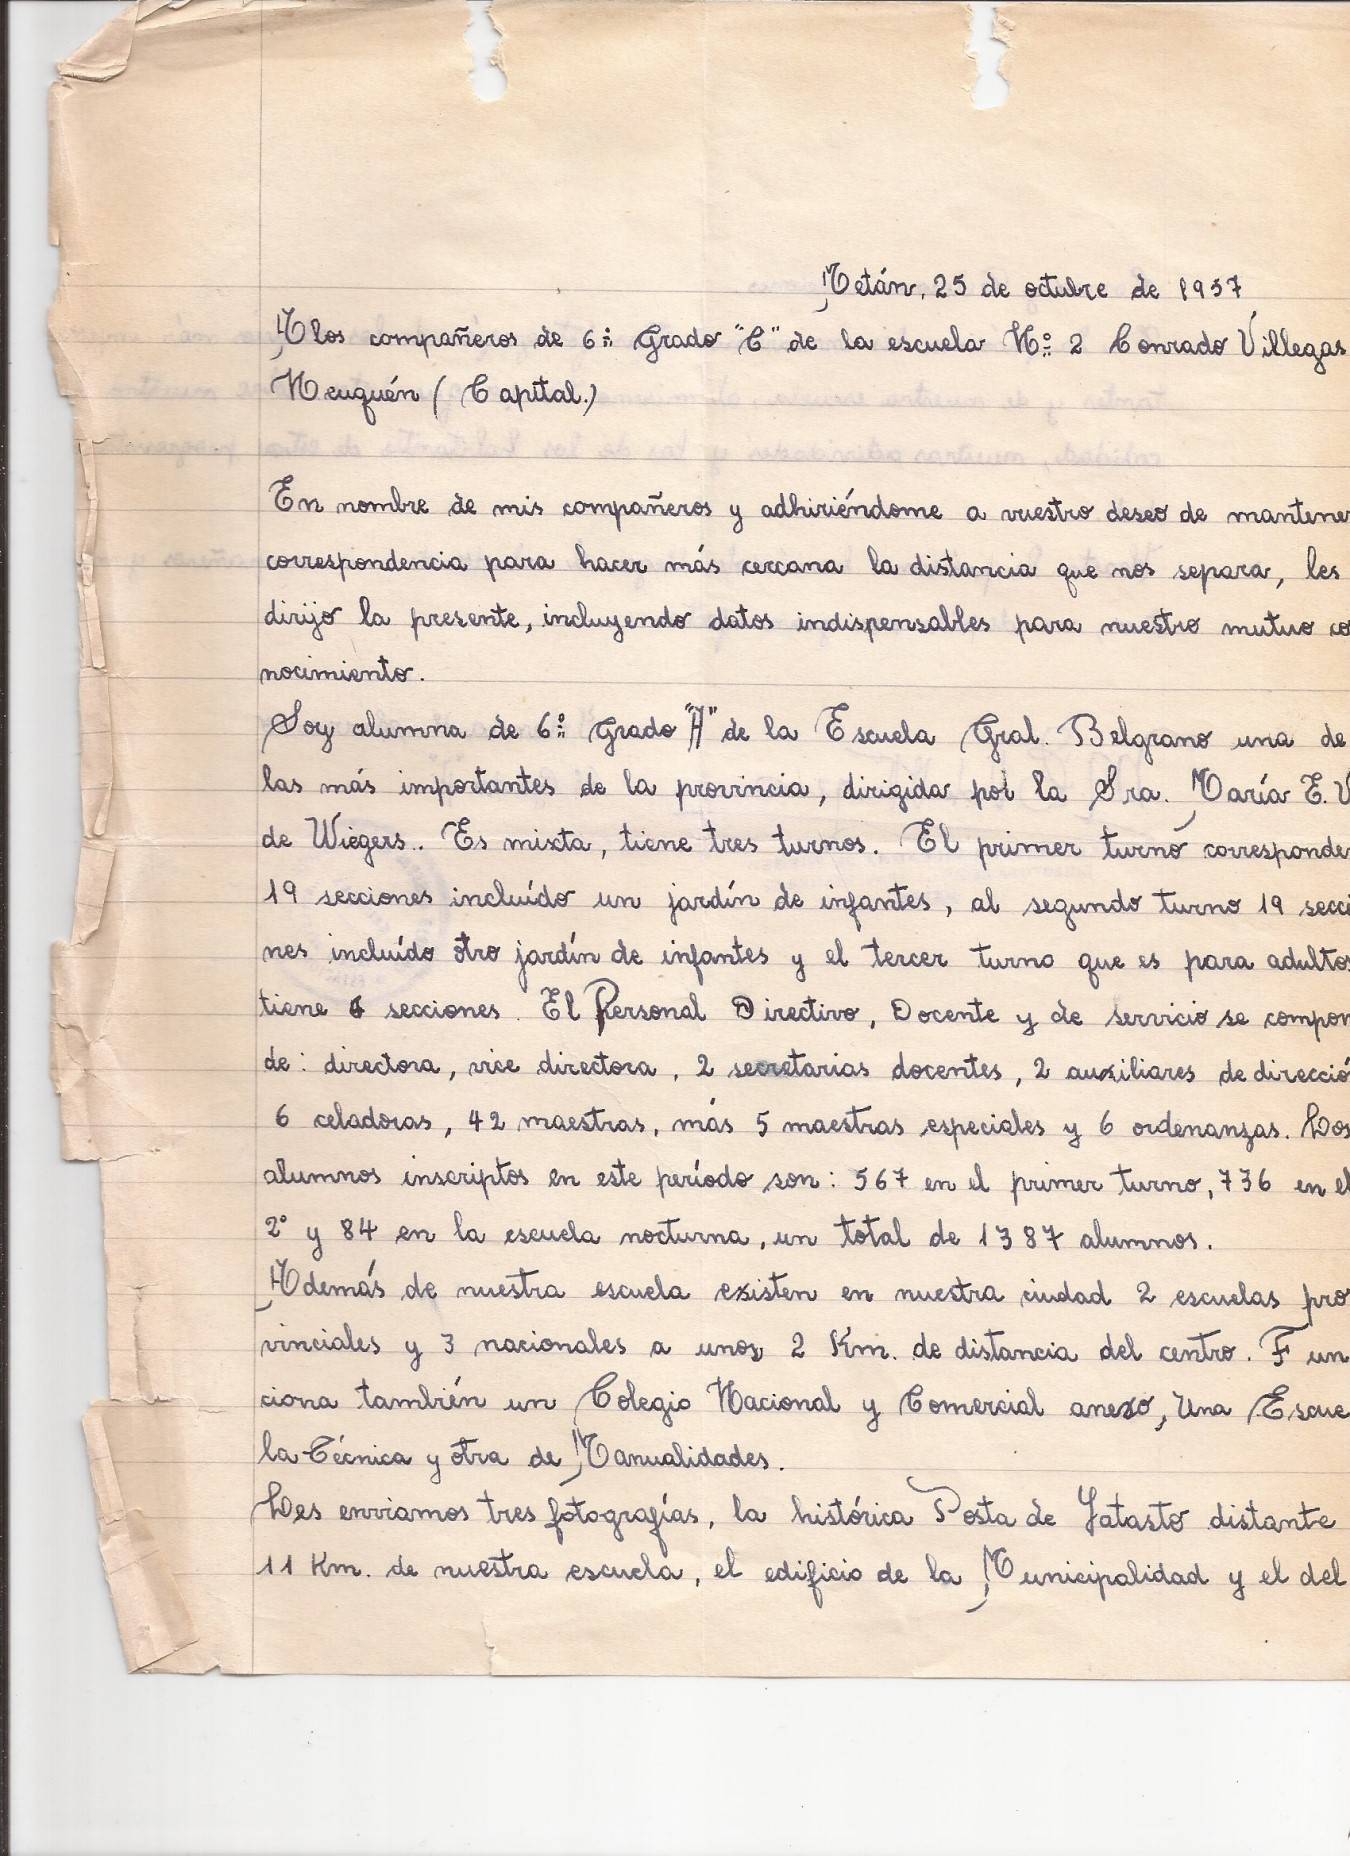 Metán, 25 de octubre de 1957
A los compañeros de 6º Grado "C" de la escuela Nº 2 Conrado Villegas
Neuquén (Capital.)
En nombre de mis compañeros y adhiriéndome a vuestro deseo de mantener
correspondencia para hacer más cercana la distancia que nos separa, les
dirijo la presente, incluyendo datos indispensables para nuestro mutuo co
nocimiento.
Soy alumna de 6º Grado "A" de la Escuela Gral. Belgrano una de
las más importantes de la provincia, dirigida por la Sra. María E. V
de Wiegers.. Es mixta, tiene tres turnos. El primer turno corresponde
19 secciones incluído un jardín de infantes, al segundo turno 19 secci
nes incluído otro jardín de infantes y el tercer turno que es para adultos
tiene 6 secciones. El Personal Directivo, Docente y de servicio se compon
de: directora, vice directora, 2 secretarias docentes, 2 auxiliares de direcció
6 celadoras, 42 maestras, más 5 maestras especiales y 6 ordenanzas. Los
alumnos inscriptos en este período son: 567 en el primer turno, 736 en el
2º y 84 en la escuela nocturna, un total de 1387 alumnos.
Además de nuestra escuela existen en nuestra ciudad 2 escuelas pro
vinciales y 3 nacionales a unos 2 Km. de distancia del centro. Fun
ciona también un Colegio Nacional y Comercial anexo, Una Escue
la Técnica y otra de Manualidades.
Les enviamos tres fotografías, la histórica Posta de Yatasto distante
11 Km. de nuestra escuela, el edificio de la Municipalidad y el del